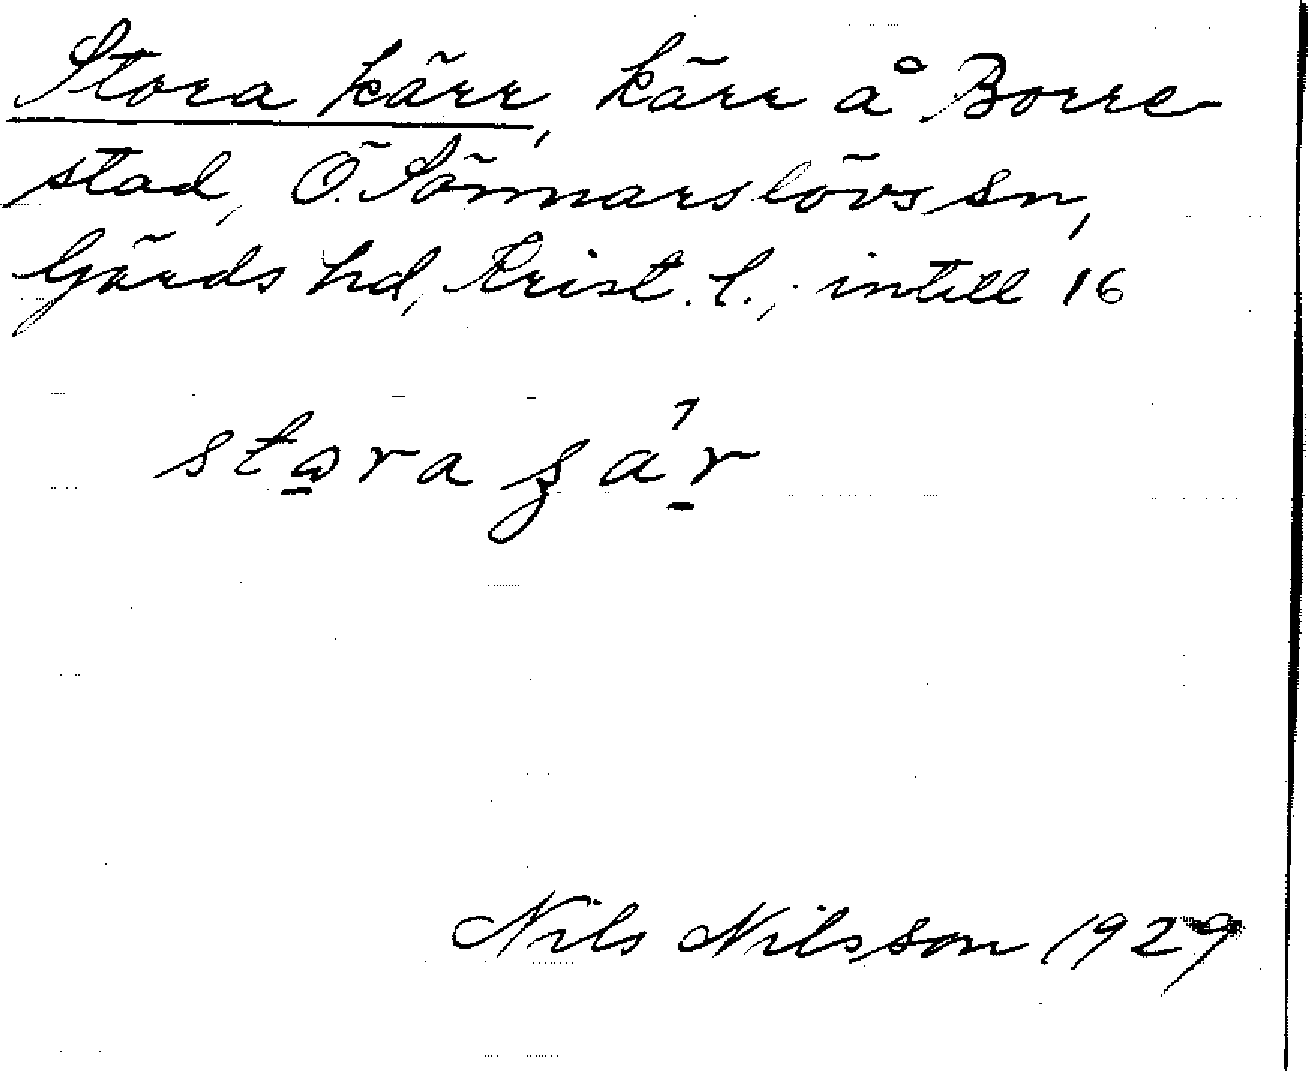 Stora kärr, kärr å Borre
stad, Ö. Sönnarslövs sn,
Gärds hd, Krist. l., intill 16
Nils Nilsson 1929